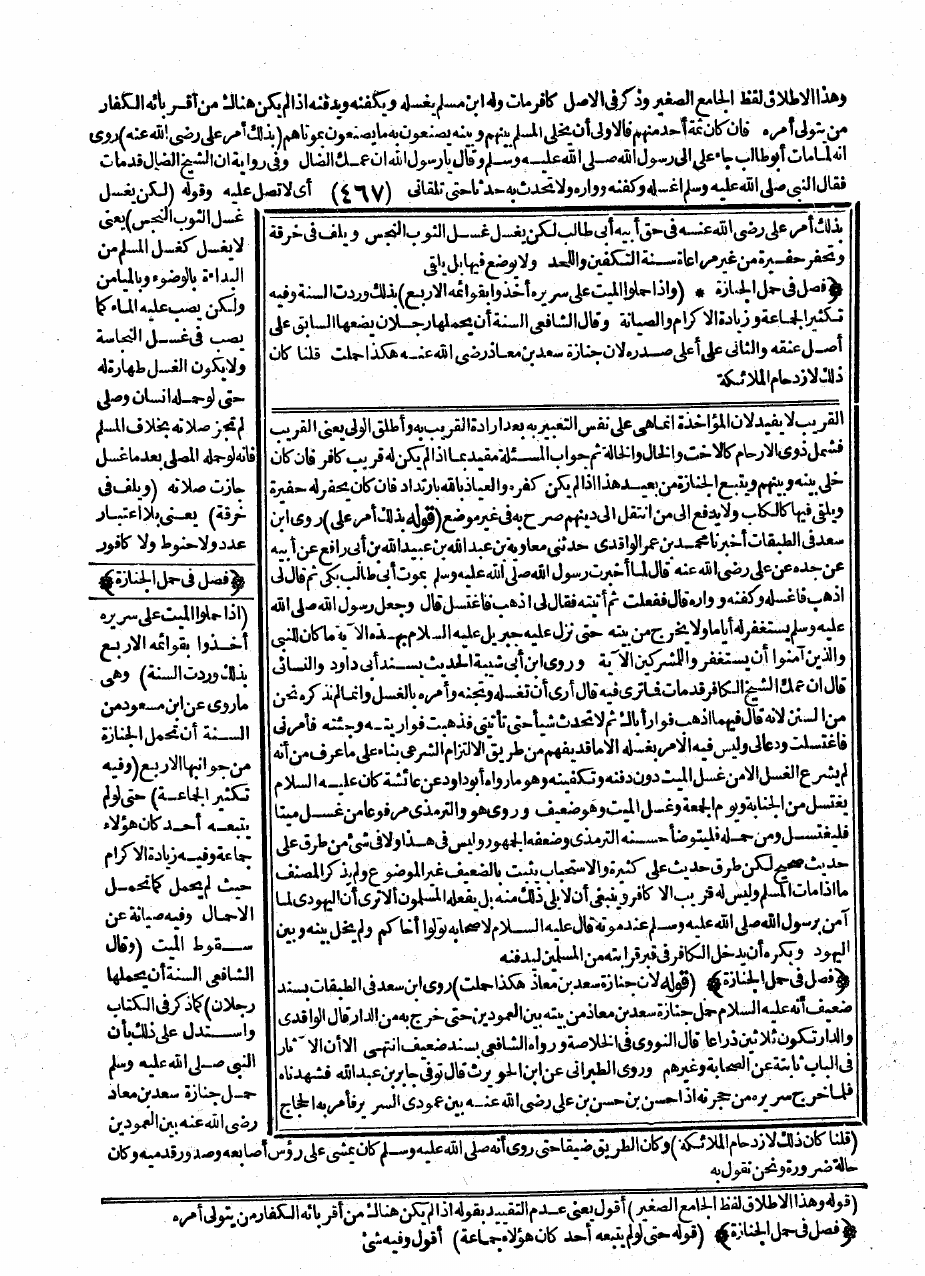 وهذا الاطلاق لفظ الجامع الصغير وذكر فى الاصل كافر مات وله ابن مسلم يغسله ويكفنه ويدفنه اذا لم يكن هناك من أقربائه الكفار
من يتولى أمره فان كان ثمة أحد منهم فالاولى أن يخلى المسلم بينهم وبينه يصنعون به ما يصنعون بموتاهم (بذلك أمر على رضى الله عنه) روى
انه لما مات أبو طالب جاء على الى رسول الله صلى الله عليه وسلم وقال يا رسول الله ان عمك الضال وفى رواية ان الشيخ الضال قد مات
فقال النبى صلى الله عليه وسلم اغسله وكفنه وواره ولا تحدث به حدثا حتى تلقانى (٤٦٧) أى لا تصل عليه وقوله (لكن يغسل
غسل الثوب النجس) يعنى
لا يغسل كغسل المسلم من
البداءة بالوضوء وبالميامن
ولكن يصب عليه الماء كما
يصب فى غسل النجاسة
ولا يكون الغسل طهارة له
حتى لو حمله انسان وصلى
لم تجز صلاته بخلاف المسلم
فانه لو حمله المصلى بعد ما غسل
جازت صلاته (ويلف فى
خرقة) يعنى بلا اعتبار
عدد ولا حنوط ولا كافور
﴿فصل فى حمل الجنازة﴾
(اذا حملوا الميت على سريره
أخذوا بقوائمه الاربع
بذلك وردت السنة) وهى
ما روى عن ابن مسعود من
السنة أن تحمل الجنازة
من جوانبها الاربع (وفيه
تكثير الجماعة) حتى لو لم
يتبعه أحد كان هؤلاء
جماعة وفيه زيادة الاكرام
حيث لم يحمل كما تحمل
الاحمال وفيه صيانة عن
سقوط الميت (وقال
الشافعى السنة أن يحملها
رجلان) كما ذكر فى الكتاب
واستدل على ذلك بأن
النبى صلى الله عليه وسلم
حمل جنازة سعد بن معاذ
رضى الله عنه بين العمودين
بذلك أمر على رضى الله عنه فى حق أبيه أبى طالب لكن يغسل غسل الثوب النجس ويلف فى خرقة
وتحفر حفيرة من غير مراعاة سنة التكفين واللحد ولا يوضع فيها بل يلقى
﴿فصل فى حمل الجنازة﴾ * (واذا حملوا الميت على سريره أخذوا بقوائمه الاربع) بذلك وردت السنة وفيه
تكثير الجماعة وزيادة الاكرام والصيانة وقال الشافعى السنة أن يحملها رجلان يضعها السابق على
أصل عنقه والثانى على أعلى صدره لان جنازة سعد بن معاذ رضى الله عنه هكذا حملت قلنا كان
ذلك لازدحام الملائكة
القريب لا يفيد لان المؤاخذة انما هى على نفس التعبير به بعد ارادة القريب به وأطلق الولى يعنى القريب
فشمل ذوى الارحام كالاخت والخال والخالة ثم جواب المسئلة مقيد بما اذا لم يكن له قريب كافر فان كان
خلى بينه وبينهم ويتبع الجنازة من بعيد هذا اذا لم يكن كفره والعياذ بالله بارتداد فان كان يحفر له حفيرة
ويلقى فيها كالكلب ولا يدفع الى من انتقل الى دينهم صرح به فى غير موضع (قوله بذلك أمر على) روى ابن
سعد فى الطبقات أخبرنا محمد بن عمر الواقدى حدثنى معاوية بن عبد الله بن عبيد الله بن أبى رافع عن أبيه
عن جده عن على رضى الله عنه قال لما أخبرت رسول الله صلى الله عليه وسلم بموت أبى طالب بكى ثم قال لى
اذهب فاغسله وكفنه وواره قال ففعلت ثم أتيته فقال لى اذهب فاغتسل قال وجعل رسول الله صلى الله
عليه وسلم يستغفر له أياما ولا يخرج من بيته حتى نزل عليه جبريل عليه السلام بهذه الآية ما كان للنبى
والذين آمنوا أن يستغفروا للمشركين الآية وروى ابن أبى شيبة الحديث بسند أبى داود والنسائى
قال ان عمك الشيخ الكافر قد مات فما ترى فيه قال أرى أن تغسله وتجنه وأمره بالغسل وانما لم نذكره نحن
من السنن لانه قال فيهما اذهب فوار أباك ثم لا تحدث شيأ حتى تأتينى فذهبت فواريته وجئته فأمرنى
فاغتسلت ودعا لى وليس فيه الامر بغسله الا ما قد يفهم من طريق الالتزام الشرعى بناء على ما عرف من أنه
لم يشرع الغسل الا من غسل الميت دون دفنه وتكفينه وهو ما رواه أبو داود عن عائشة كان عليه السلام
يغتسل من الجنابة ويوم الجمعة وغسل الميت وهو ضعيف وروى هو والترمذى مرفوعا من غسل ميتا
فليغتسل ومن حمله فليتوضأ حسنه الترمذى وضعفه الجمهور وليس فى هذا ولا فى شئ من طرق على
حديث صحيح لكن طرق حديث على كثيرة والاستحباب يثبت بالضعيف غير الموضوع ولم يذكر المصنف
ما اذا مات المسلم وليس له قريب الا كافر وينبغى أن لا يلى ذلك منه بل يفعله المسلمون ألا ترى أن اليهودى لما
آمن برسول الله صلى الله عليه وسلم عند موته قال عليه السلام لاصحابه تولوا أخاكم ولم يخل بينه وبين
اليهود ويكره أن يدخل الكافر فى قبر قرابته من المسلمين ليدفنه
﴿فصل فى حمل الجنازة﴾ (قوله لان جنازة سعد بن معاذ هكذا حملت) روى ابن سعد فى الطبقات بسند
ضعيف أنه عليه السلام حمل جنازة سعد بن معاذ من بيته بين العمودين حتى خرج به من الدار قال الواقدى
والدار تكون ثلاثين ذراعا قال النووى فى الخلاصة ورواه الشافعى بسند ضعيف انتهى الا أن الآثار
فى الباب ثابتة عن الصحابة وغيرهم وروى الطبرانى عن ابن الحويرث قال توفى جابر بن عبد الله فشهدناه
فلما خرج سريره من حجرته اذا حسن بن حسن بن على رضى الله عنه بين عمودى السرير فأمر به الحجاج
(قلنا كان ذلك لازدحام الملائكة) وكان الطريق ضيقا حتى روى أنه صلى الله عليه وسلم كان يمشى على رؤس أصابعه وصدور قدميه وكان
حالة ضرورة ونحن نقول به
(قوله وهذا الاطلاق لفظ الجامع الصغير) أقول يعنى عدم التقييد بقوله اذا لم يكن هناك من أقربائه الكفار من يتولى أمره
﴿فصل فى حمل الجنازة﴾ (قوله حتى لو لم يتبعه أحد كان هؤلاء جماعة) أقول وفيه شئ